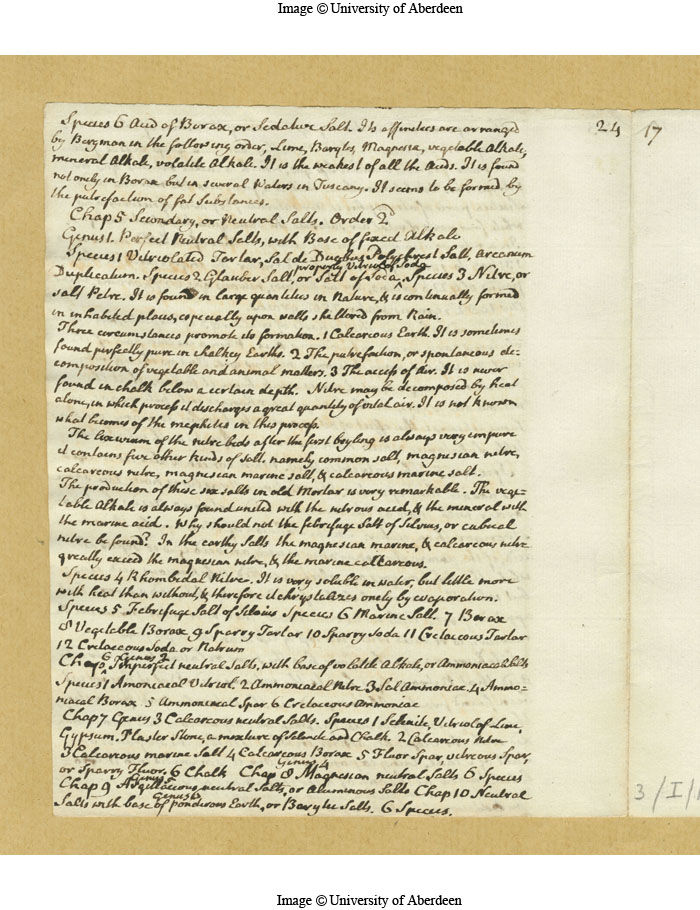 Image © University of Aberdeen
24 17
Species 6 Acid of Borax, or Sedative Salt. Its affinities are arranged
by Bergman in the following order, Lime, Barytes, Magnesia, vegetable Alkali,
mineral Alkali, volatile Alkali. It is the weakest of all the Acids. It is found
not onely in Borax but in several Waters in Tuscany. It seems to be formed by
the putrefaction of fat Substances.
Chap 5 Secondary, or Neutral Salts. Order 2d
Genus 1. Perfect Neutral Salts, with Base of fixed Alkali
Species 1 Vitriolated Tartar, Sal de Duobus Polychrest Salt, Arcanum
Duplicatum. Species 2 Glauber Salt, or Salt of Soda ^ properly Vitriol of Soda. Species 3 Nitre, or
salt Petre. It is found in large quantities in Nature, & is continually formed
in inhabited places, especially upon walls sheltered from Rain.
Three circumstances promote its formation. 1 Calcareous Earth. It is sometimes
found perfectly pure in chalkey Earths. 2 The putrefaction, or spontaneous de-
composition of vegetable and animal matters. 3 The access of Air. It is never
found in chalk below a certain depth. Nitre may be decomposed by heat
alone, in which process it discharges a great quantity of vital air. It is not known
what becomes of the mephites in this process.
The lixivium of the nitre beds after the first boyling is always very impure
it contains five other kinds of salt. namely common salt, magnesian nitre,
calcareous nitre, magnesian marine salt, & calcareous marine salt.
The production of these six salts in old Mortar is very remarkable. The vege-
table Alkali is always found united with the nitrous acid, & the mineral with
the marine acid. Why should not the febrifuge Salt of Selvius, or cubical
nitre be found? In the earthy Salts the magnesian marine, & calcareous nitre
greatly exceed the magnesian nitre, & the marine calcareous.
Species 4 Rhombidal Nitre. It is very soluble in water, but little more
with heat than without, & therefore it chrystalizes onely by evaporation.
Species 5 Febrifuge Salt of Silvius Species 6 Marine Salt. 7 Borax
8 Vegetable Borax 9 Sparry Tartar 10 Sparry Soda 11 Cretaceous Tartar
12 Cretaceous Soda or Natrum
Chap ^ 6 Genus 2 Imperfect neutral Salts, with base of volatile Alkali, or Ammoniacal Salts
Species 1 Amoniacal Vitriol. 2 Ammoniacal Nitre 3 Sal Ammoniac. 4 Ammo-
niacal Borax 5 Ammoniacal Spar 6 Cretaceous Ammoniac
Chap 7 Genus 3 Calcareous neutral Salts. Species 1 Selenite, Vitriol of Lime,
Gypsum. Plaster Stone, a mixture of Selenite and Chalk. 2 Calcareous Nitre
3 Calcareous marine Salt 4 Calcareous Borax 5 Fluor Spar, vitreous Spar,
or Sparry Fluor. 6 Chalk Chap 8 Genus 4 Magnesian neutral Salts 6 Species
Chap 9 Genus 5 Argillaceous neutral Salts, or Aluminous Salts Chap 10 Neutral
Salts with base of Genus 6 ponderous Earth, or Barytic Salts. 6 Species.
3/I/
Image © University of Aberdeen